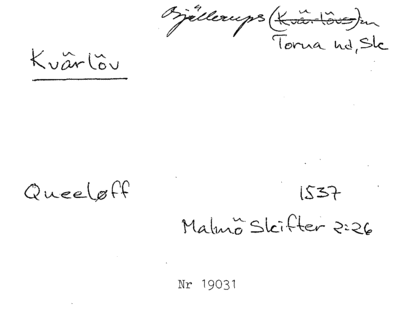 Bjällerups (Kvärlövs) sn
Torna hd, Sk
Kvärlöv
Queeløff 1537
Malmö Skifter 2:26
Nr 19031